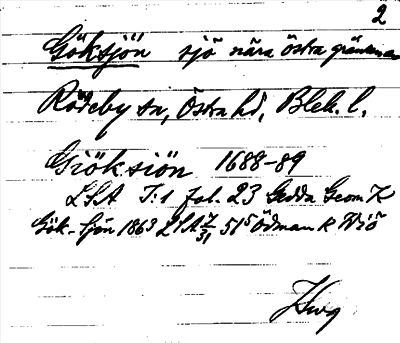 2
Göksjön sjö nära östra gränsen
Rödeby sn, Östra hd, Blek. l.
Giöksiön 1688-89
LSA I:1 fol. 23 Gedda Geom K
Gök-sjön 1863 LSA 51 Ödman R